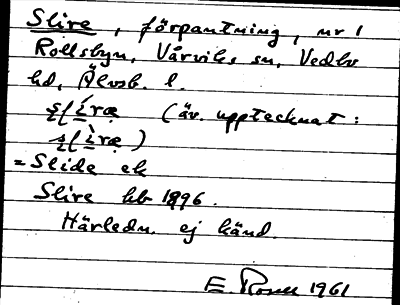 Slire, förpantning, nr 1
Rollsbyn, Vårviks sn, Vedbo
hd, Älvsb. l.
(äv. upptecknat:
= Slide ek
Slire hb 1896.
Härledn. ej känd.
E. Rosell 1961